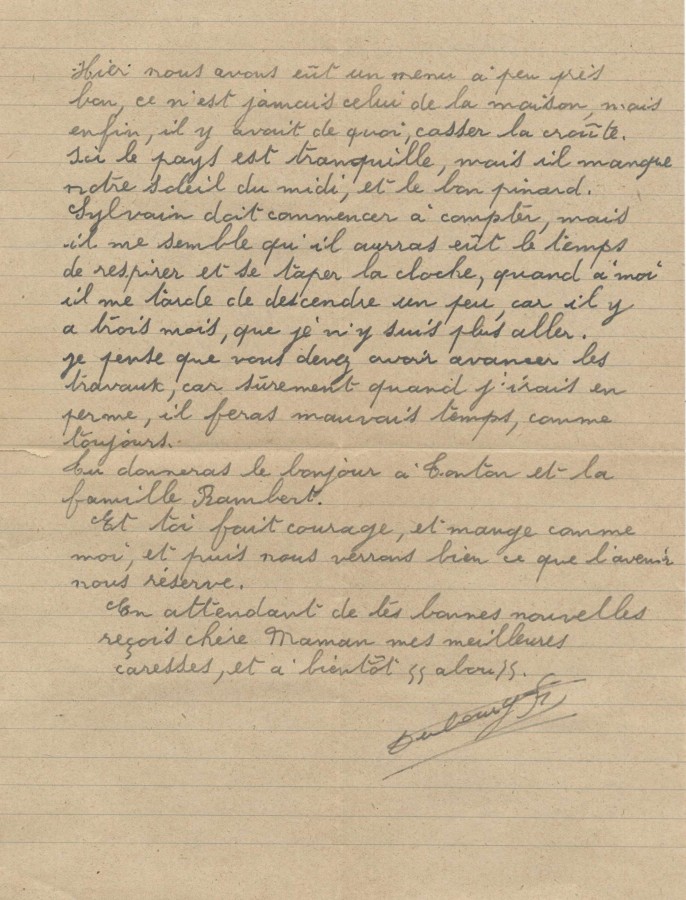 Hier nous avons eût un menu à peu près
bon, ce n'est jamais celui de la maison, mais
enfin, il y avait de quoi, casser la croûte.
Ici le pays est tranquille, mais il manque
nôtre soleil du midi, et le bon pinard.
Sylvain doit commencer à compter, mais
il me semble qu'il ayrras eût le temps
de respirer et se taper la cloche, quand à moi
il me tarde de descendre un peu, car il y
a trois mois, que je n'y suis plus aller.
je pense que vous devez avoir avancer les
travaux, car sûrement quand j'irais en
perme, il feras mauvais temps, comme
toujours.
Tu donneras le bonjour à Tonton et la
famille Rambert.
Et toi fait courage, et mange comme
moi, et puis nous verrons bien ce que l'avenir
nous réserve.
En attendant de tès bonnes nouvelles
reçois chère Maman mes meilleures
caresses, et à bientôt